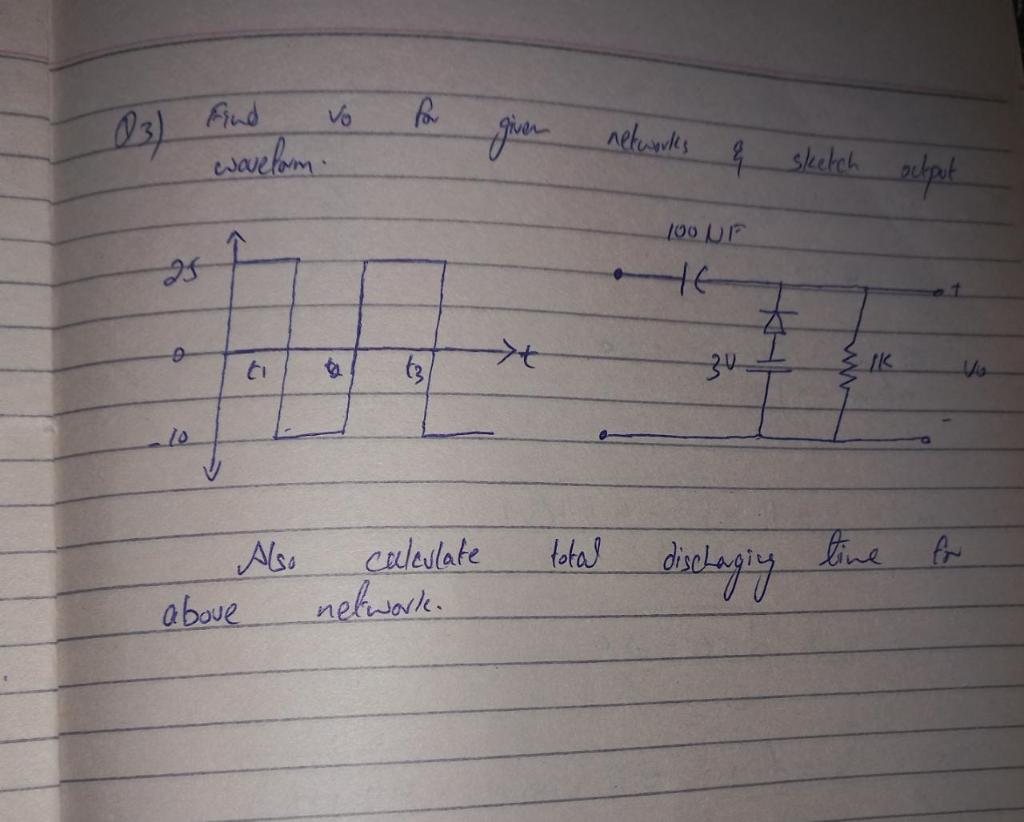 Q3) Find Vo for given networks & sketch output
waveform.
100 UF
25
0
t1
t2
t3
t
-10
3V
1K
Vo
+
-
Also calculate total dischaging time for
above network.